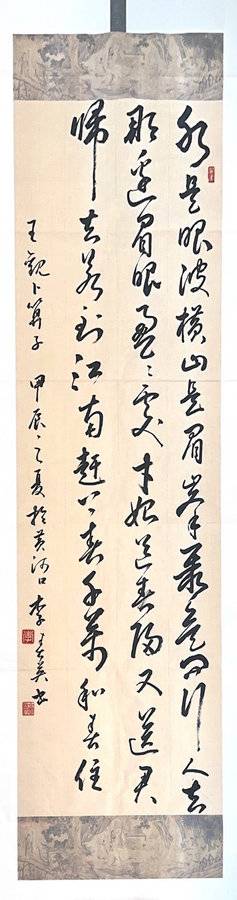 水是眼波横山是眉峯聚欲问行人去
那邊眉眼盈〻處才始送春歸又送君
歸去若到江南赶上春千萬和春住
王觀卜算子 甲辰之夏於黄河口 李英书